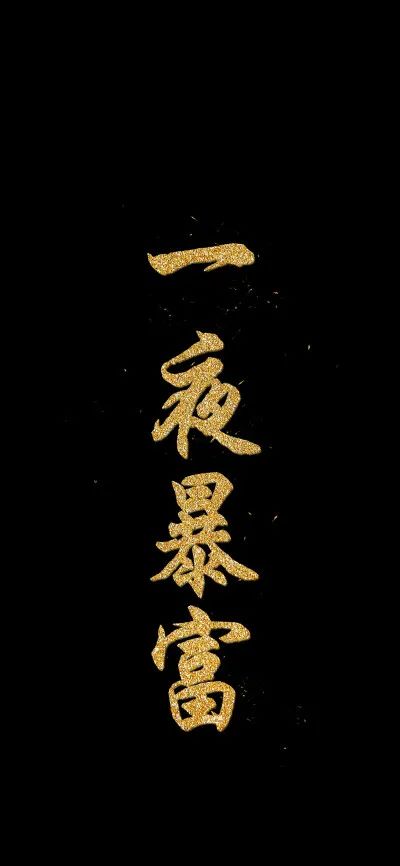 一夜暴富